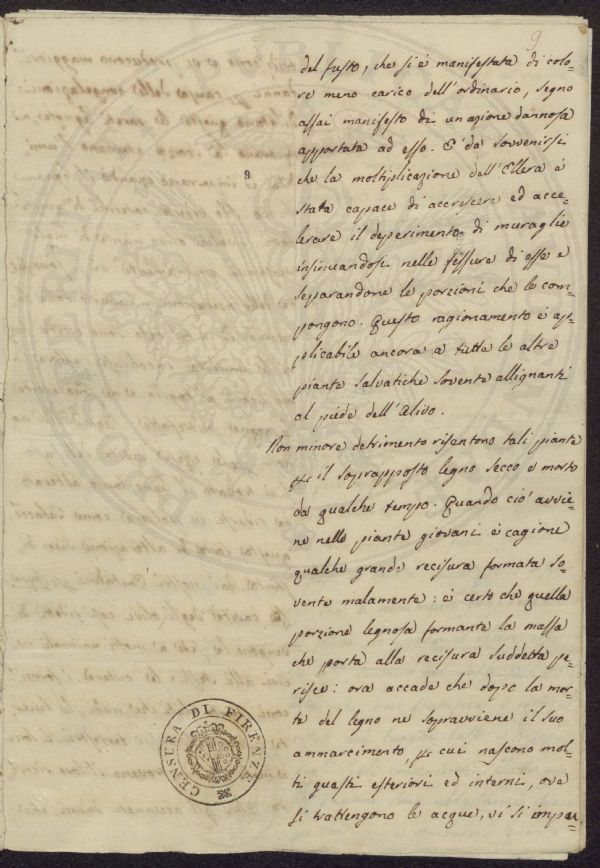 9
del fusto, che si è manifestata di colo-
re meno carico dell'ordinario, segno
assai manifesto di un azione dannosa
apportata ad esso. E' da sovvenirsi
che la moltiplicazione dell'Ellera è
stata capace di accrescere ed acce-
lerare il deperimento di muraglie
insinuandosi nelle fessure di esse e
separandone le porzioni che le com-
pongono. Questo ragionamento è ap-
plicabile ancora a tutte le altre
piante salvatiche sovente allignanti
al piede dell'Ulivo.
Non minore detrimento risentono tali piante
per il soprapposto legno secco e morto
da qualche tempo. Quando ciò avvie-
ne nelle piante giovani è cagione
qualche grande recisura formata so-
vente malamente: è certo che quella
porzione legnosa formante la massa
che porta alla recisura suddetta pe-
risce: ora accade che dopo la mor-
te del legno ne sopravviene il suo
ammarcimento, per cui nascono mol-
ti guasti esteriori ed interni, ove
si trattengono le acque, vi si impu-
CENSURA DI FIRENZE